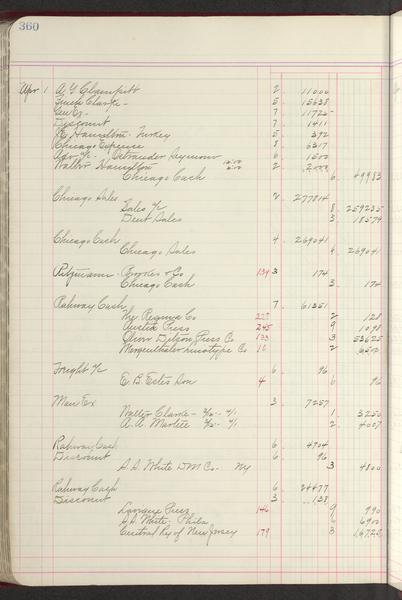 360
Apr 1 A. G. Clampitt 2 11000
Clarke - 5 15638
7 11725
Discount 7 1411
Hamilton - Turkey 5 392
Chicago Expense 8 6317
Seymour 6 1500
Walter Hamilton 2 2000
Chicago Cash 6 49983
Chicago Sales 2 277814
Sales 8 259235
Dent Sales 3 18579
Chicago Cash 4 269041
Chicago Sales 4 269041
Brooks & Co 134 3 174
Chicago Cash 3 174
Rahway Cash 7 61351
The Regina Co 227 2 128
Austin Press 245 9 1098
Oliver Ditson Press Co 133 3 53625
Mergenthaler Linotype Co 2 6500
Freight 6 96
E. B. Estes Son 4 6 96
Man Ex 3 7257
Walter Clarke - 1 3250
A. A. 2 4007
Rahway Cash 6 4704
Discount 6 96
S. S. White D M Co. Ny 3 4800
Rahway Cash 6 24477
Discount 3 138
Press 146 9 990
S. S. White Phila 6 6900
Central Ry of New Jersey 179 3 16725